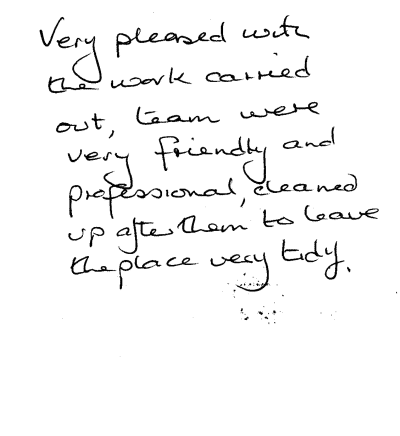 Very pleased with
the work carried
out, team were
very friendly and
professional, cleaned
up after them to leave
the place very tidy.